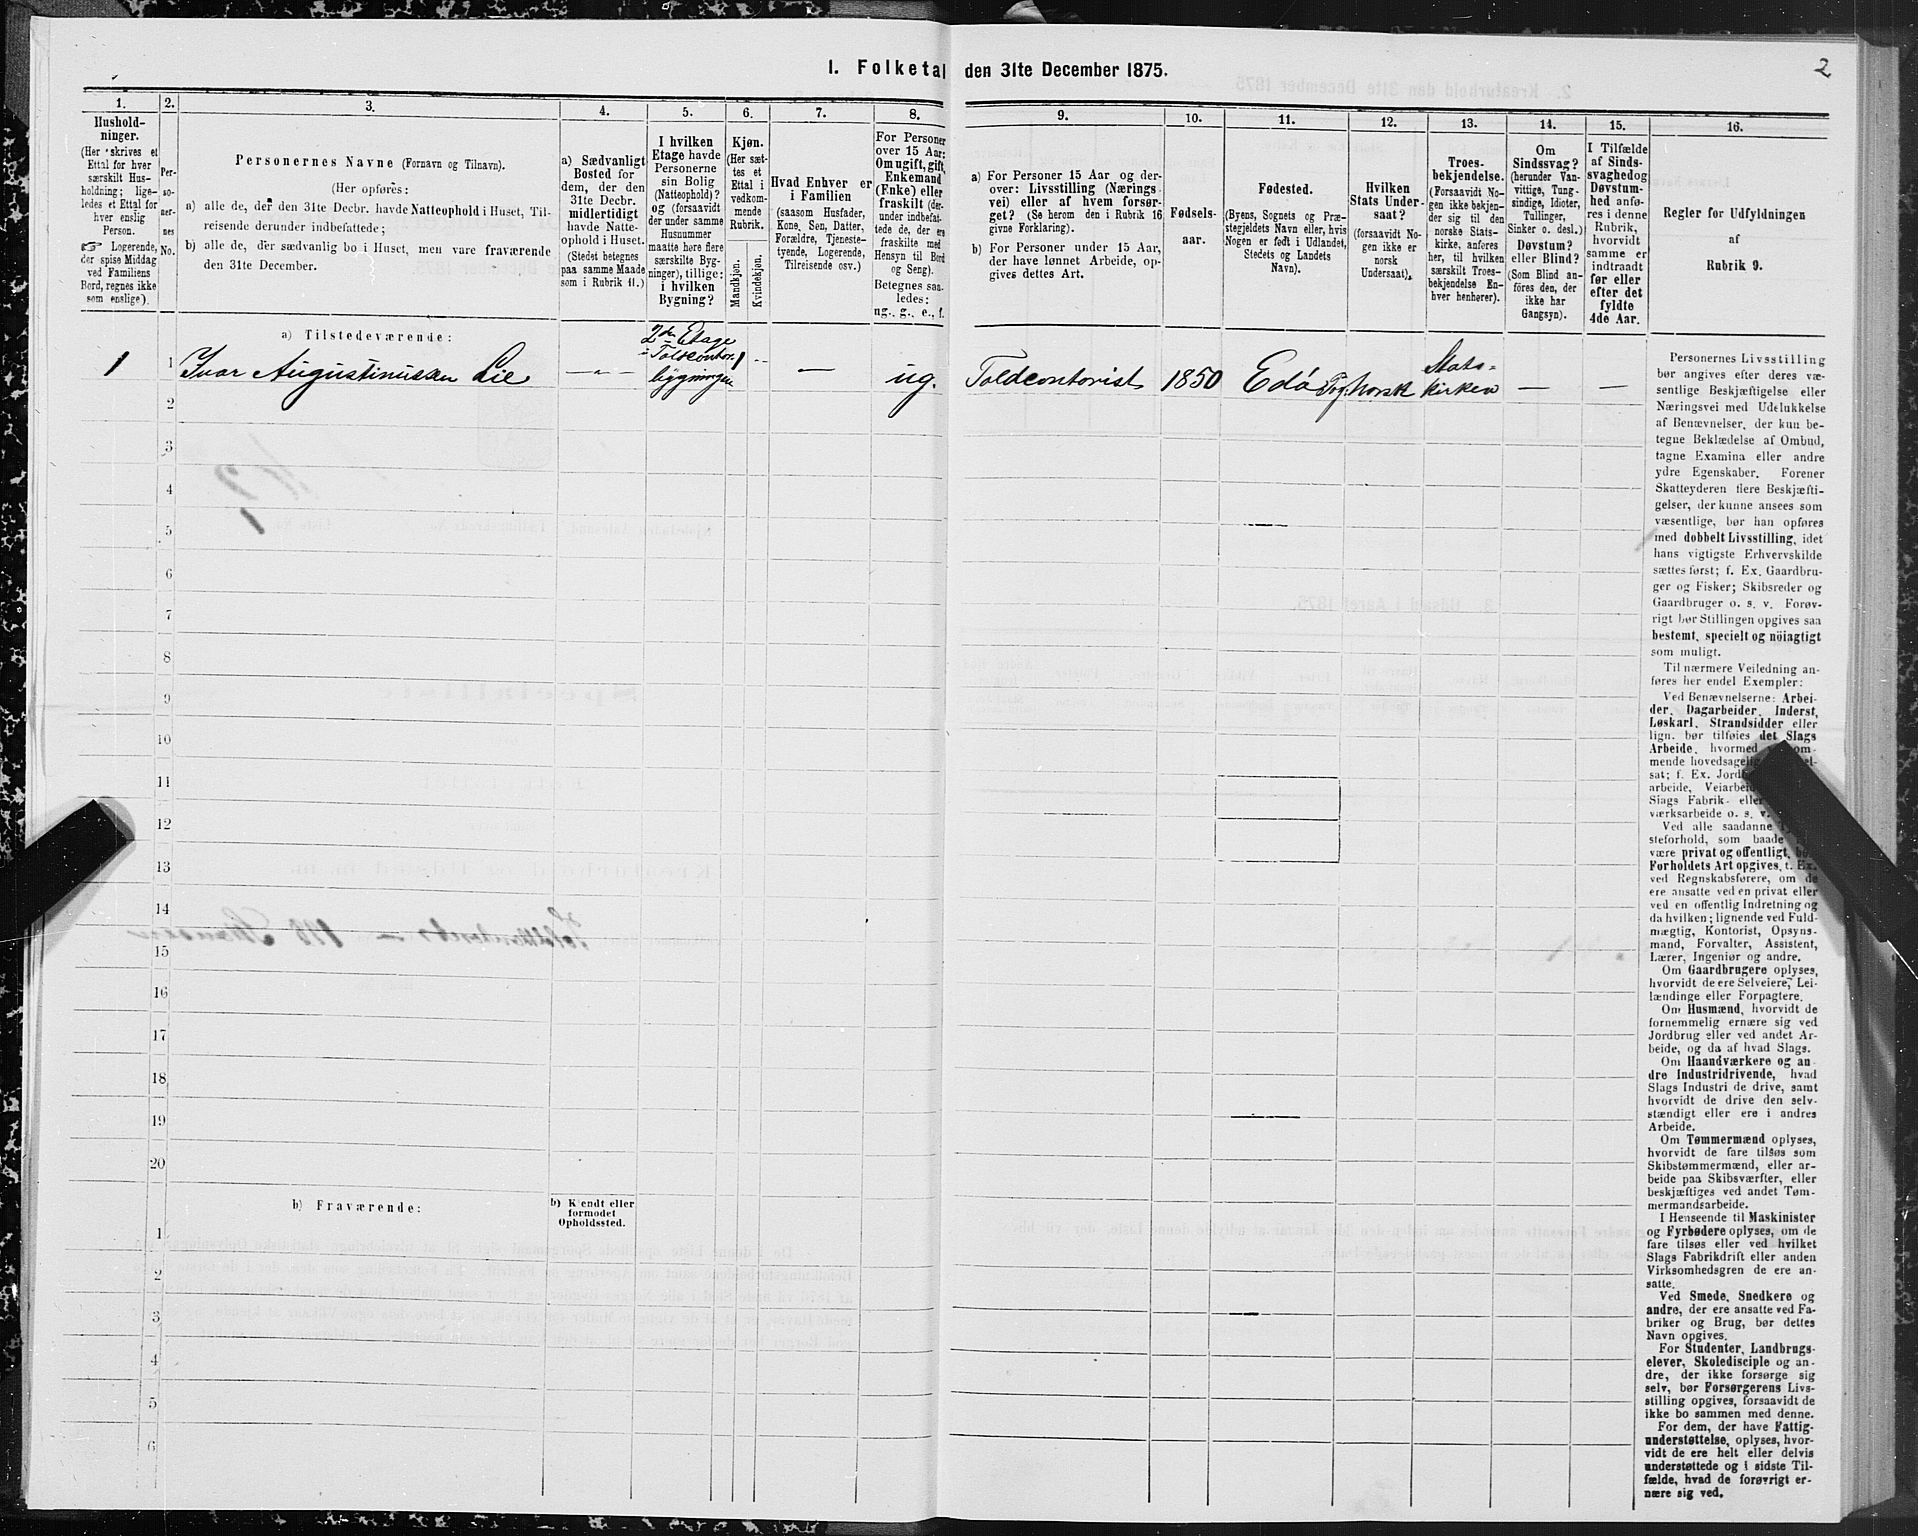 1. Folketal den 31te December 1875.
2
1.
2.
3.
4.
5.
6.
7.
8.
9.
10.
11.
12.
13.
14.
15.
16.
Hushold-
ninger.
(Her skrives et
Ettal for hver
særskilt Hus-
holdning; lige-
ledes et Ettal for
hver enslig
Person.
☞ Logerende,
der spise Middag
ved Familiens
Bord, regnes ikke
som enslige).
Per-
so-
ner-
nes
No.
Personernes Navne (Fornavn og Tilnavn).
(Her opføres:
a) alle de, der den 31te Decbr. havde Natteophold i Huset, Til-
reisende derunder indbefattede;
b) alle de, der sædvanlig bo i Huset, men vare fraværende
den 31te December.
a) Sædvanligt
Bosted for
dem, der den
31te Decbr.
midlertidigt
havde Natte-
ophold i Huset.
(Stedet betegnes
paa samme Maade
som i Rubrik 11.)
I hvilken
Etage havde
Personerne
sin Bolig
(Natteophold)?
og (forsaavidt
der under samme
Husnummer
maatte høre flere
særskilte Byg-
ninger), tillige:
i hvilken
Bygning?
Kjøn.
(Her sæt-
tes et
Ettal i
vedkom-
mende
Rubrik.
Mandkjøn.
Kvindekjøn.
Hvad Enhver er
i Familien
(saasom Husfader,
Kone, Søn, Datter,
Forældre, Tjeneste-
tyende, Logerende,
Tilreisende osv.)
For Personer
over 15 Aar:
Om ugift, gift,
Enkemand
(Enke) eller
fraskilt (der-
under indbefat-
tede de, der ere
fraskilte med
Hensyn til Bord
og Seng).
Betegnes saa-
ledes:
ug., g., e., f.
a) For Personer 15 Aar og der-
over: Livsstilling (Nærings-
vei) eller af hvem forsør-
get? (Se herom den i Rubrik 16
givne Forklaring).
b) For Personer under 15 Aar,
der have lønnet Arbeide, op-
gives dettes Art.
Fødsels-
aar.
Fødested.
(Byens, Sognets og Præ-
stegjeldets Navn eller, hvis
Nogen er født i Udlandet,
Stedets og Landets
Navn).
Hvilken
Stats Under-
saat?
(forsaavidt No-
gen ikke er
norsk
Undersaat).
Troes-
bekjendelse.
(Forsaavidt No-
gen ikke bekjen-
der sig til den
norske Stats-
kirke, anføres
her, til hvilken
særskilt Troes-
bekjendelse En-
hver henhører).
Om
Sindssvag?
(herunder Van-
vittige, Tung-
sindige, Idioter,
Tullinger,
Sinker o. desl.)
Døvstum?
eller Blind?
(Som Blind an-
føres den, der
ikke har
Gangsyn).
I Tilfælde
af Sinds-
svaghed og
Døvstum-
hed anfø-
res i denne
Rubrik,
hvorvidt
samme er
indtraadt
før eller
efter det
fyldte
4de Aar.
Regler for Udfyldningen
af
Rubrik 9.
a) Tilstedeværende:
1 1 Ivar Augustinussen Lie —„— 2den Etage i Toldcontor-bygningen 1 -- — ug. Toldcontorist 1850 Edø Norsk Stats-kirken — —
2
3
4
5
6
7
8
9
10
11
12
13
14
15
16
17
18
19
20
b) Fraværende:
b) Kjendt eller
formodet
Opholdssted.
1
2
3
4
5
6
Personernes Livsstilling
bør angives efter deres væ-
sentlige Beskjæftigelse eller
Næringsvei med Udelukkelse
af Benævnelser, der kun be-
tegne Beklædelse af Ombud,
tagne Examina eller andre
ydre Egenskaber. Forener
Skatteyderen flere Beskjæfti-
gelser, der kunne ansees som
væsentlige, bør han opføres
med dobbelt Livsstilling, idet
hans vigtigste Erhvervskilde
sættes først; f. Ex. Gaardbru-
ger og Fisker; Skibsreder og
Gaardbruger o. s. v. Forøv-
rigt bør Stillingen opgives saa
bestemt, specielt og nøiagtigt
som muligt.
Til nærmere Veiledning an-
føres her endel Exempler:
Ved Benævnelserne: Arbei-
der, Dagarbeider, Inderst,
Løskarl, Strandsidder eller
lign. bør tilføies det Slags
Arbeide, hvormed
mende hovedsagelig
sat; f. Ex.
arbeide,
Slags Fabrik- eller
værksarbeide o. s. v.
Ved alle saadanne
steforhold, som baade
være privat og offentlig, bør
Forholdets Art opgives, t. Ex.
ved Regnskabsførere, om de
ere ansatte ved en privat eller
ved en offentlig Indretning og
da hvilken; lignende ved Fuld-
mægtig, Kontorist, Opsyns-
mand, Forvalter, Assistent,
Lærer, Ingeniør og andre.
Om Gaardbrugere oplyses,
hvorvidt de ere Selveiere, Lei-
lændinge eller Forpagtere.
Om Husmænd, hvorvidt de
fornemmelig ernære sig ved
Jordbrug eller ved andet Ar-
beide, og da af hvad Slags.
Om Haandværkere og an-
dre Industridrivende, hvad
Slags Industri de drive, samt
hvorvidt de drive den selv-
stændigt eller ere i andres
Arbeide.
Om Tømmermænd oplyses,
hvorvidt de fare tilsøs som
Skibstømmermænd, eller ar-
beide paa Skibsværfter, eller
beskjæftiges ved andet Tøm-
mermandsarbeide.
I Henseende til Maskinister
og Fyrbødere oplyses, om de
fare tilsøs eller ved hvilket
Slags Fabrikdrift eller anden
Virksomhedsgren de ere an-
satte.
Ved Smede, Snedkere og
andre, der ere ansatte ved Fa-
briker og Brug, bør dettes
Navn opgives.
For Studenter, Landbrugs-
elever, Skoledisciple og an-
dre, der ikke forsørge sig
selv, bør Forsørgerens Livs-
stilling opgives, forsaavidt de
ikke bo sammen med denne.
For dem, der have Fattig-
understøttelse, oplyses, hvor-
vidt de ere helt eller delvis
understøttede og i sidste Til-
fælde, hvad de forøvrigt er-
nære sig ved.